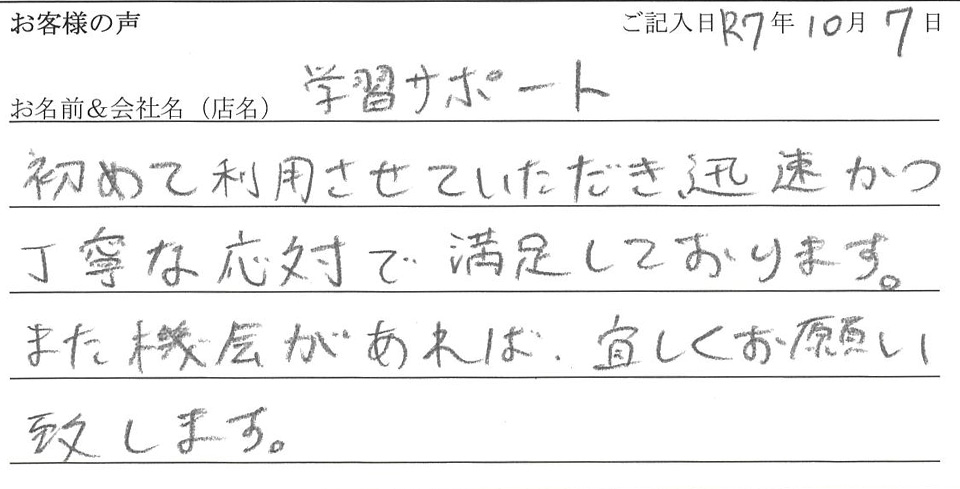 お客様の声 ご記入日R7年10月7日
お名前&会社名（店名） 学習サポート
初めて利用させていただき、迅速かつ
丁寧な応対で満足しております。
また機会があれば、宜しくお願い
致します。